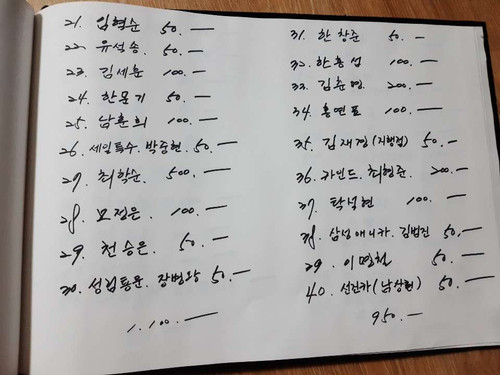 21. 임혁순 50. —
22. 유성송. 50. —
23. 김세훈 100. —
24. 한문기 50. —
25. 남훈희 100. —
26. 세일특수. 박중현. 50. —
27. 최학순. 500. —
28. 모정은. 100. —
29. 천승은. 50. —
30. 성림통운. 장병왕 50. —
1.100. —
31. 한창준 50. —
32. 한홍섭 100. —
33. 김춘영. 200. —
34. 홍연표 100. —
35. 김재경(지행점) 50. —
36. 카인드. 최형준. 200. —
37. 탁성현 100. —
38. 삼성애니카. 김범진 50. —
29. 이명철 50. —
40. 선진카(남상현) 50. —
950. —